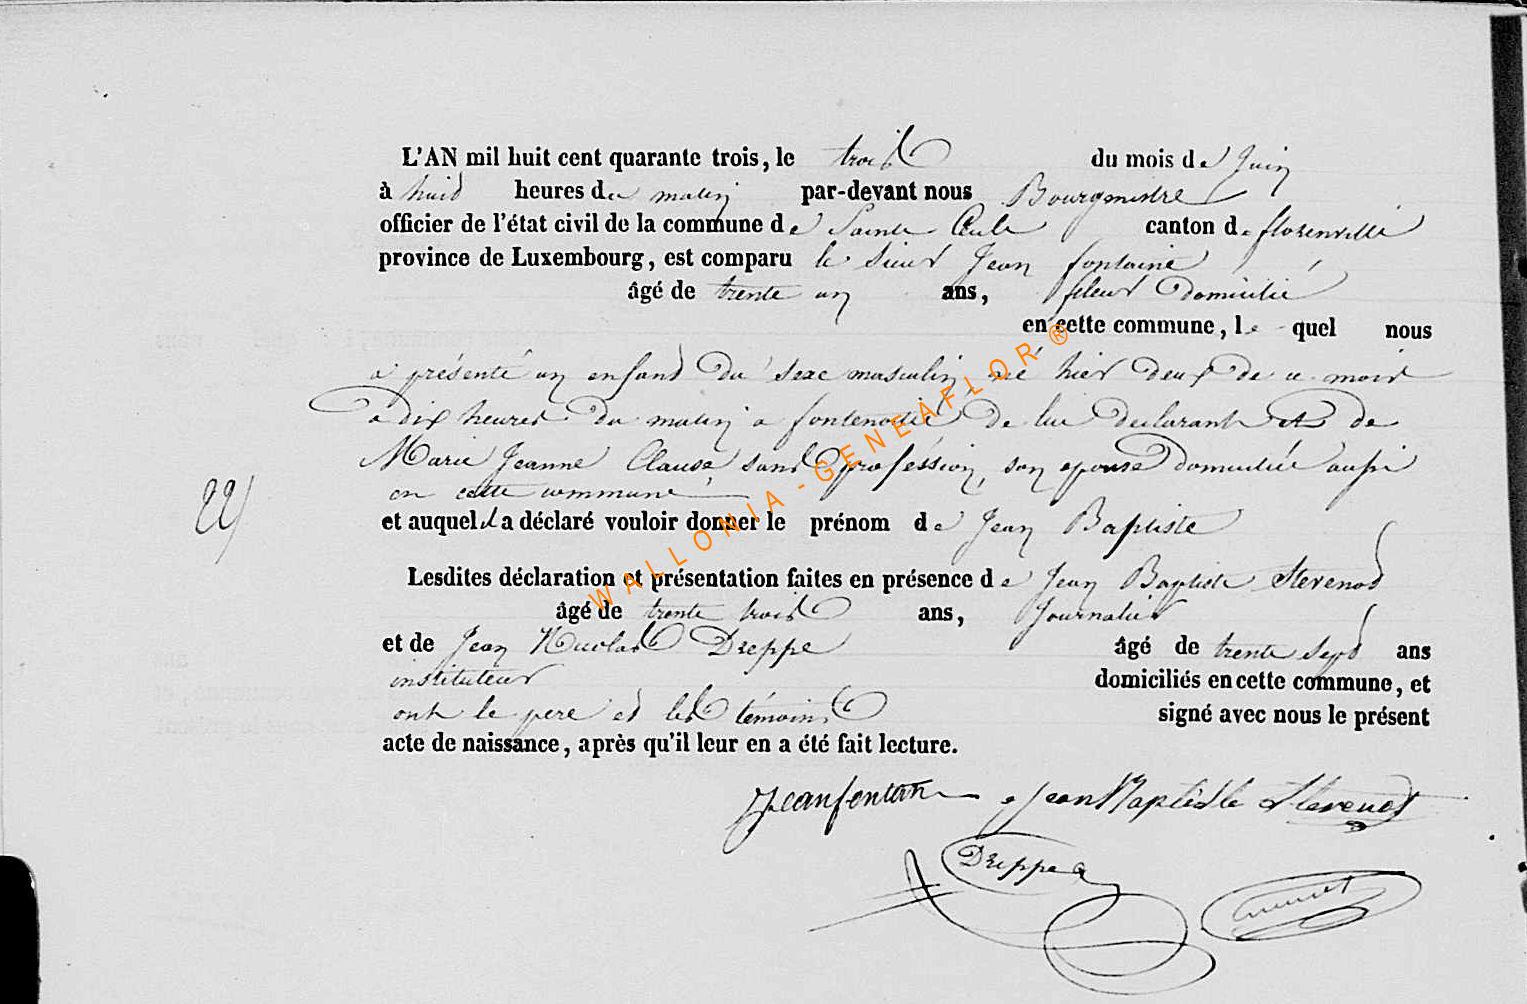 L'AN mil huit cent quarante trois, le trois du mois de Juin
à huid heures du matin par-devant nous Bourgmestre
officier de l'état civil de la commune de Sainte Cecile canton de florenville
province de Luxembourg, est comparu le sieur Jean fontaine
âgé de trente un ans, fileur domicilié
en cette commune, le quel nous
a présenté un enfand du sexe masculin, né hier deux de ce mois
a dix heures du matin a fontenoille de lui declarant et de
Marie Jeanne Clause sans proféssion, son epouse domiciliée aussi
en cette commune
22/
et auquel il a déclaré vouloir donner le prénom de Jean Baptiste
Lesdites déclaration et présentation faites en présence de Jean Baptiste Stevenod
âgé de trente trois ans, Journalier
et de Jean Nicolas Dreppe âgé de trente sepd ans
instituteur domiciliés en cette commune, et
ont le pere ed les témoins signé avec nous le présent
acte de naissance, après qu'il leur en a été fait lecture.
Jean fontan Jean Baptiste Stevenot
Dreppe
WALLONIA-GENEAFLOR ®